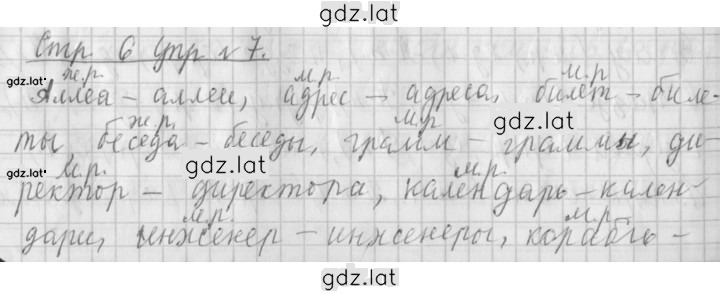 gdz.lat
Стр. 6 Упр №7.
gdz.lat
ж.р. м.р. м.р.
Аллея - аллеи, адрес - адреса, билет - биле-
ж.р. м.р.
ты беседа - беседы, грамм - граммы, ди-
gdz.lat gdz.lat
gdz.lat м.р. м.р.
ректор - директора, календарь - кален-
м.р. м.р.
дари, инженер - инженеры, корабль -
gdz.lat